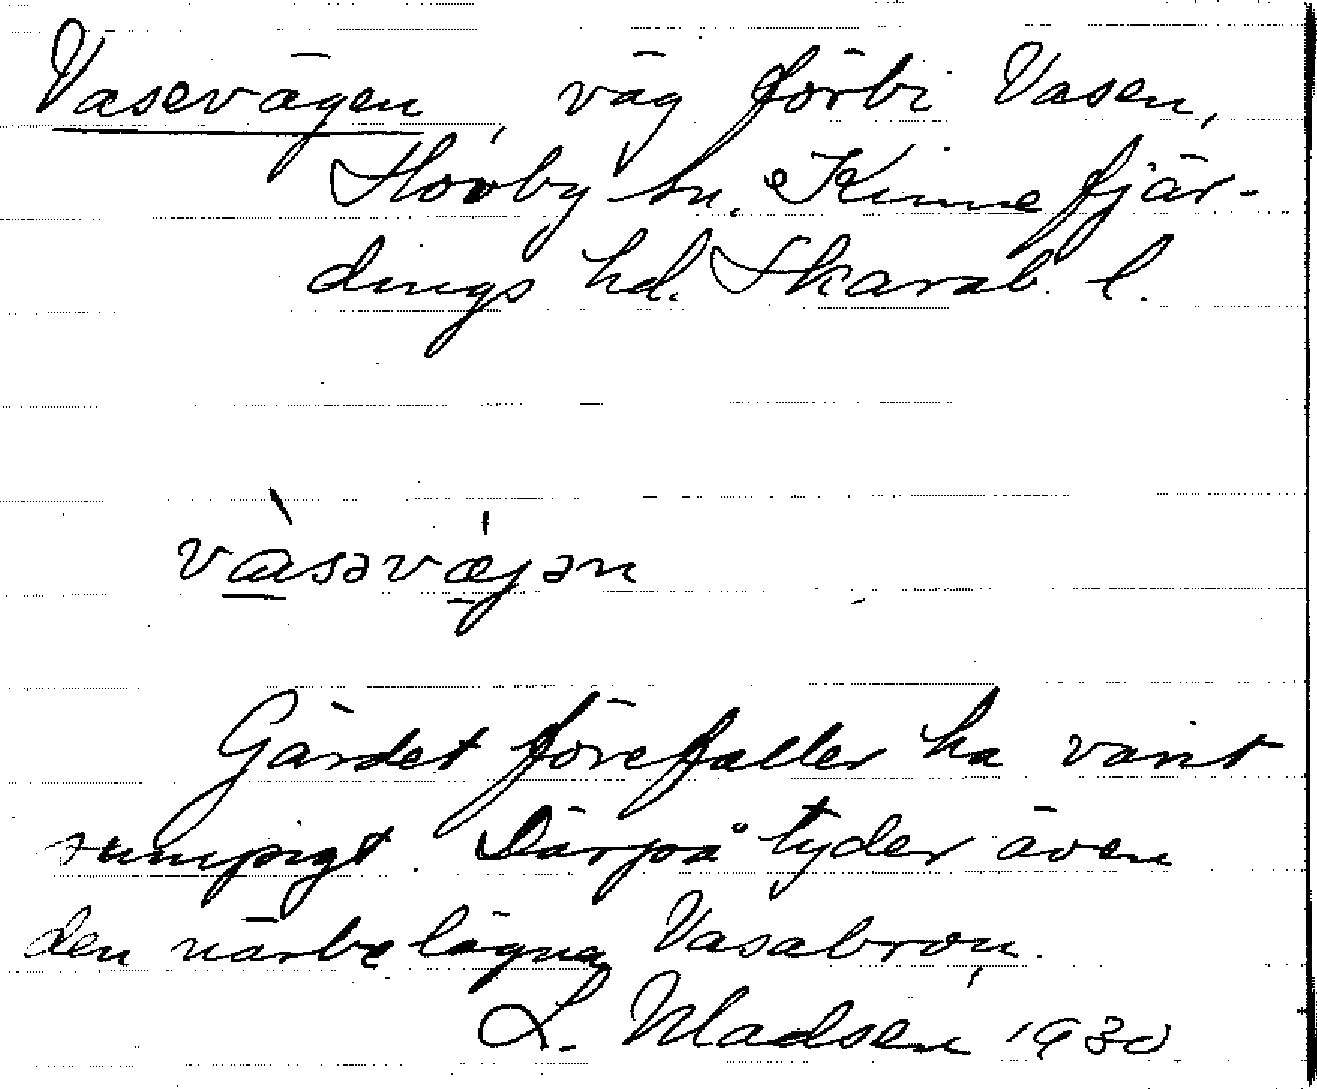 Vasevägen, väg förbi Vasen,
Hovby sn. Kinnefjär-
dings hd. Skarab. l.
vàsəvæ̀jən
Gärdet förefaller ha varit
sumpigt. Därpå tyder även
den närbelägna Vasabron.
L. Madsén 1930